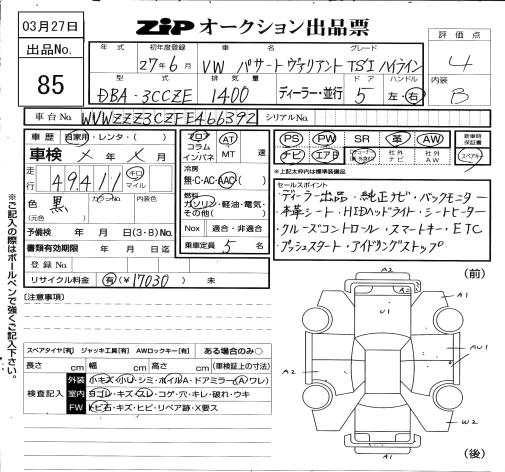 03月27日
ZIP オークション出品票
出品No.
85
評価点
4
内装
B
年式 初年度登録 車名 グレード
27年6月 VW パサートヴァリアント TSI ハイライン
型式 排気量 ドア ハンドル
DBA-3CCZE 1400 ディーラー・並行 5 左・右
車台No. WVWZZZ3CZFE466392 シリアルNo.
車歴 自家用・レンタ・( )
車検 × 年 × 月
走行 49,411 キロ マイル
色 黒 カラーNo. 内装色
(元色)
予備検 年 月 日(3・8)No.
書類有効期限 年 月 日迄
登録No.
リサイクル料金 有(¥17030) 未
フロア コラム インパネ
AT MT 速
冷房
無・C・AC・AAC・( )
燃料
ガソリン・軽油・電気・その他( )
Nox 適合・非適合
乗車定員 5 名
PS PW SR 革 AW
ナビ エアB 社外ナビ 社外AW
新車時保証書
スペアキー
※上記太枠内は標準装備品
セールスポイント
ディーラー出品・純正ナビ・バックモニター
・本革シート・HIDヘッドライト・シートヒーター
・クルーズコントロール・スマートキー・ETC
・プッシュスタート・アイドリングストップ
[注意事項]
スペアタイヤ[有] ジャッキ工具[有] AWロックキー[有] ある場合のみ○
長さ cm 幅 cm 高さ cm (車検証上の寸法)
検査記入
外装 小キズ・小U・シミ・ホイルA・ドアミラー(A・ワレ)
室内 ヨゴレ・キズ・スレ・コゲ・穴・キレ・破れ・ウキ
FW トビ石・キズ・ヒビ・リペア跡・X要ス
(前)
A2
A1
U1
AU1
A2
W2
A2
(後)
※ご記入の際はボールペンで強くご記入下さい。